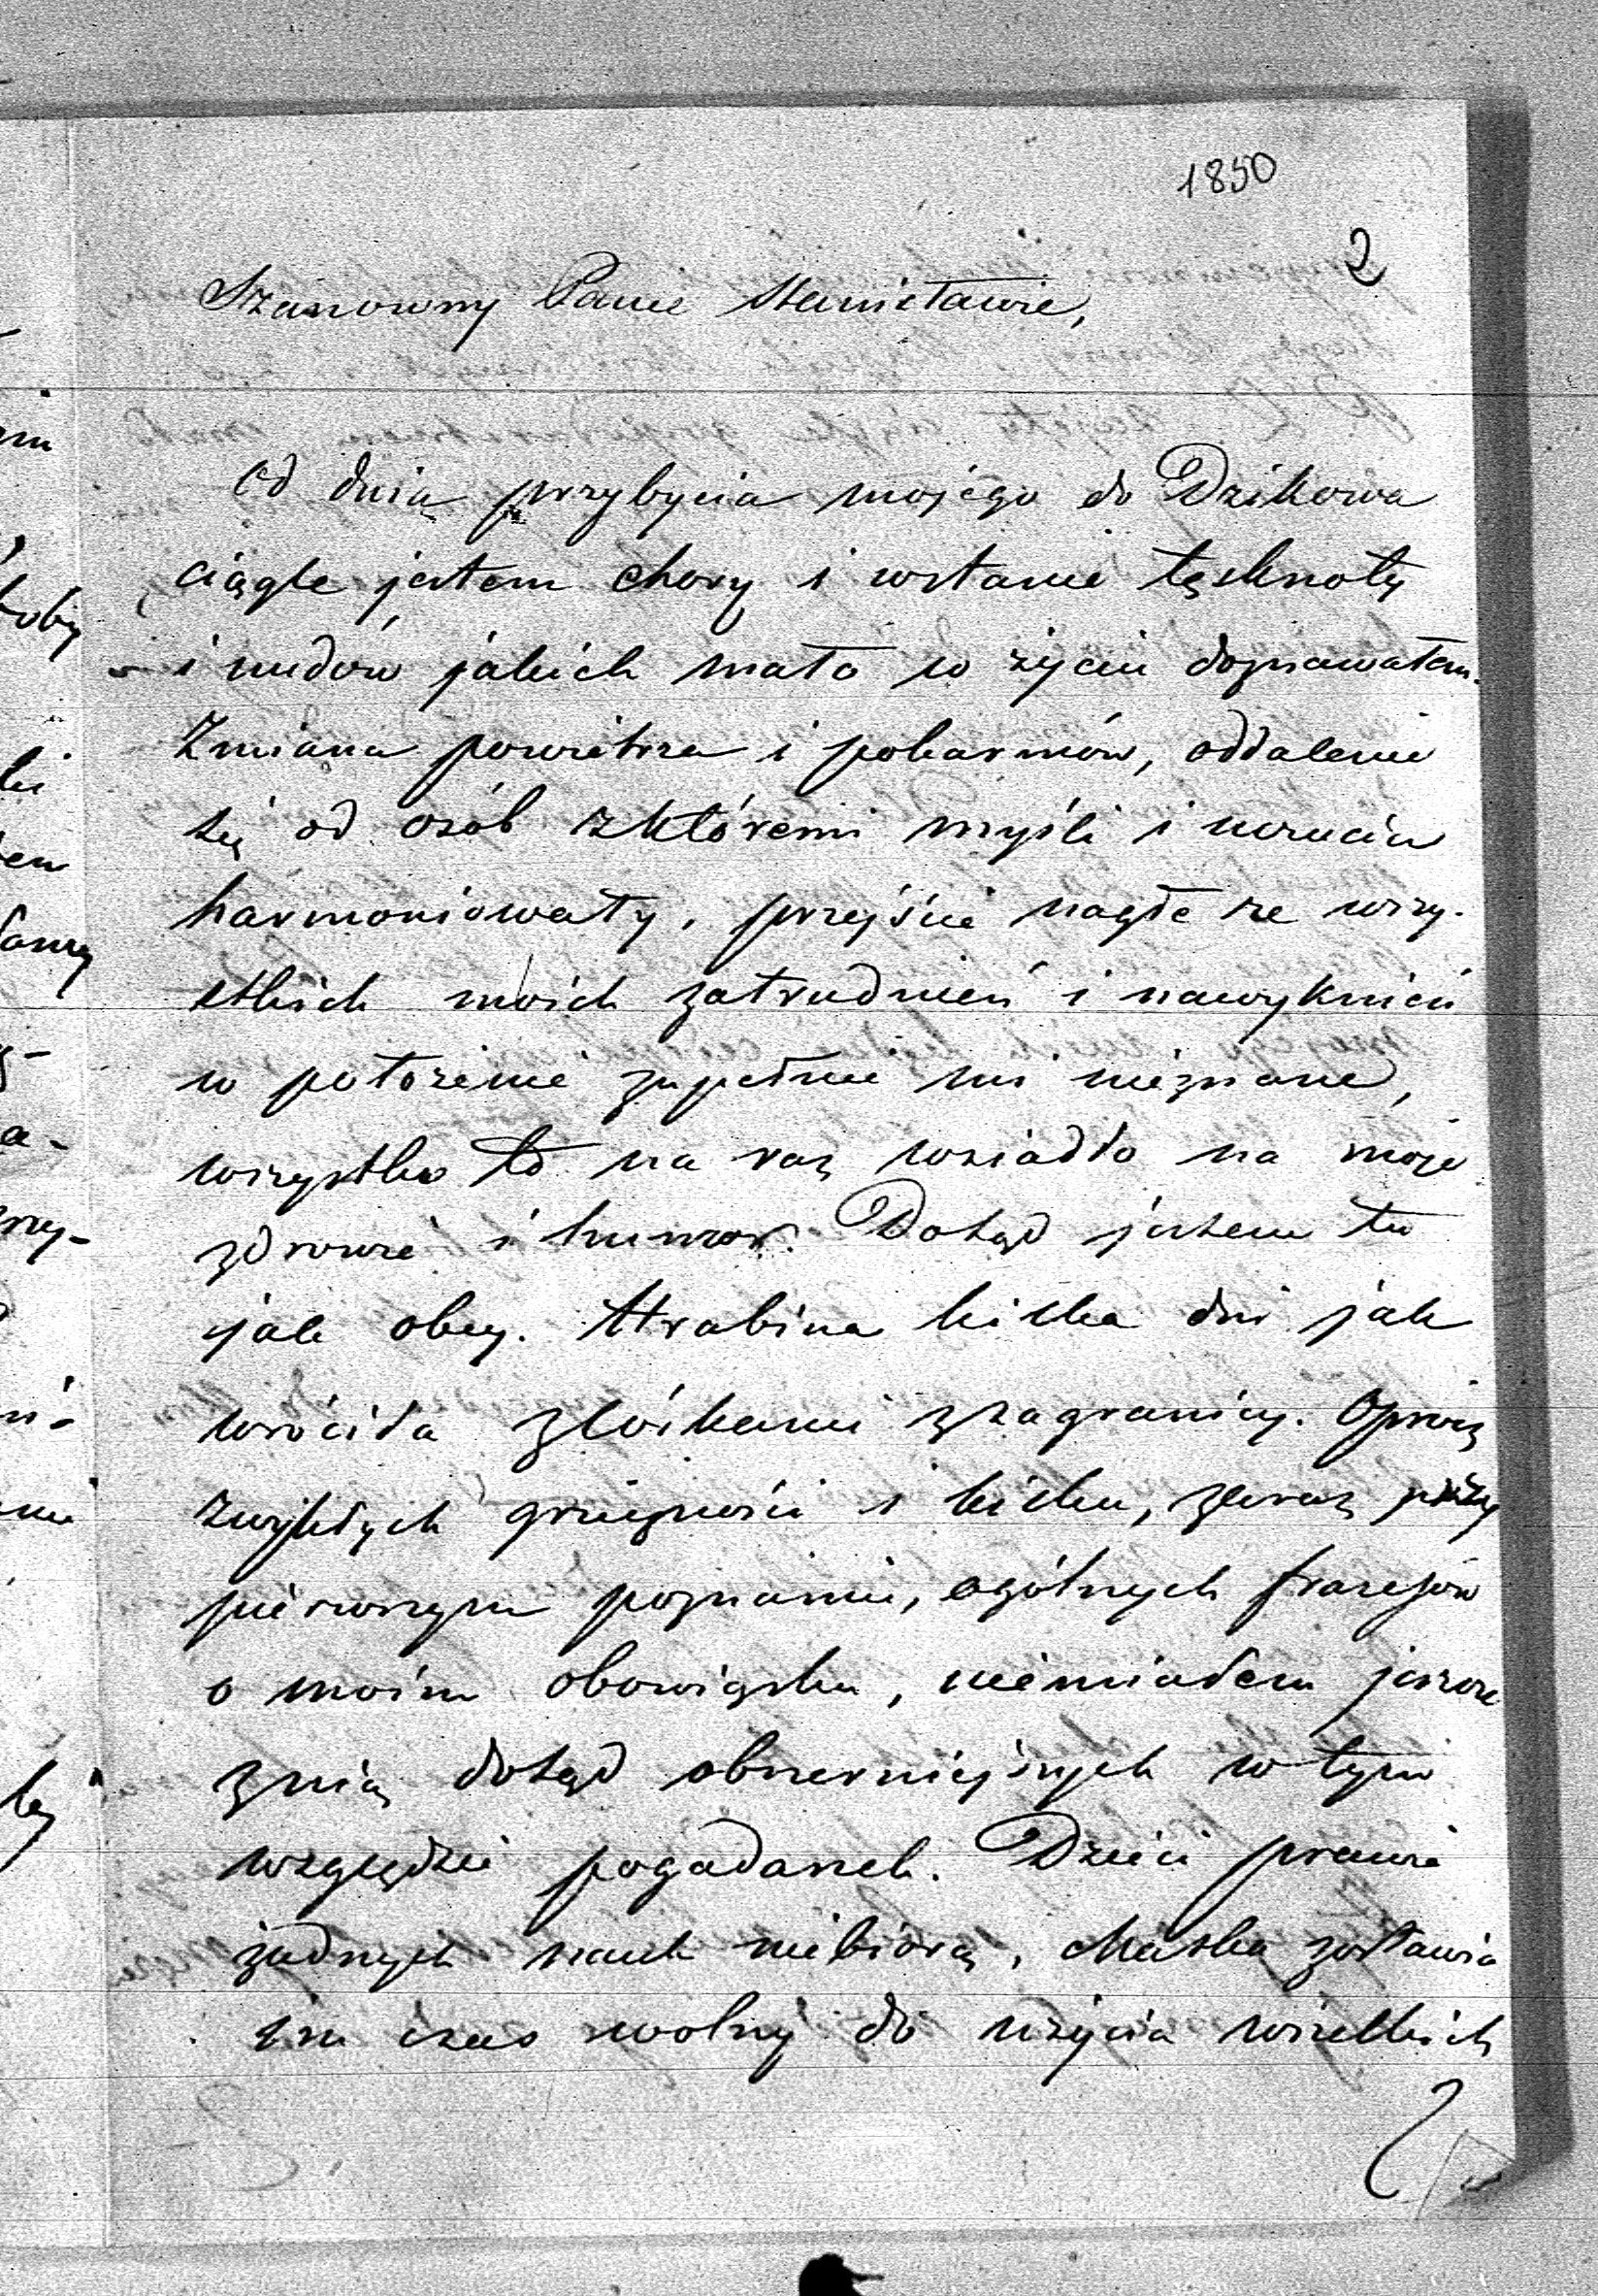 1850
2
Szanowny Panie Stanisławie,
Od dnia przybycia mojego do Dzikowa
ciągle jestem chory i wstanie tęsknoty
i nudów jakich mało w życiu doznawałem.
Zmiana powietrza i pokarmów, oddalenie
się od osób zktóremi myśli i uczucia
harmoniowały, przejście nagłe ze wszy-
stkich moich zatrudnień i nawyknień
w położenie zupełnie mi nieznane,
wszystko to na raz wsiadło na moje
zdrowie i humor. Dotąd jestem tu
jak obcy. Hrabina kilka dni jak
wróciła zcórkami zzagranicy. Oprócz
zwykłych grzeczności i kilku, zaraz przy
pierwszym poznaniu, ogólnych frazesów
o moim obowiązku, niemiałem jeszcze
znią dotąd obszerniejszych wtym
względzie pogadanek. Dzieci prawie
żadnych nauk niebiorą, Matka zostawia
im czas wolny do użycia wszelkich